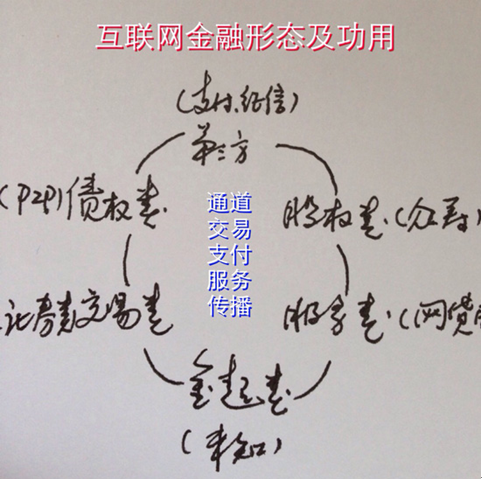 互联网金融形态及功用
(支付、征信)
第三方
(P2P)债权类
股权类(众筹)
通道
交易
支付
服务
传播
证券交易类
服务类(网贷
(未知)